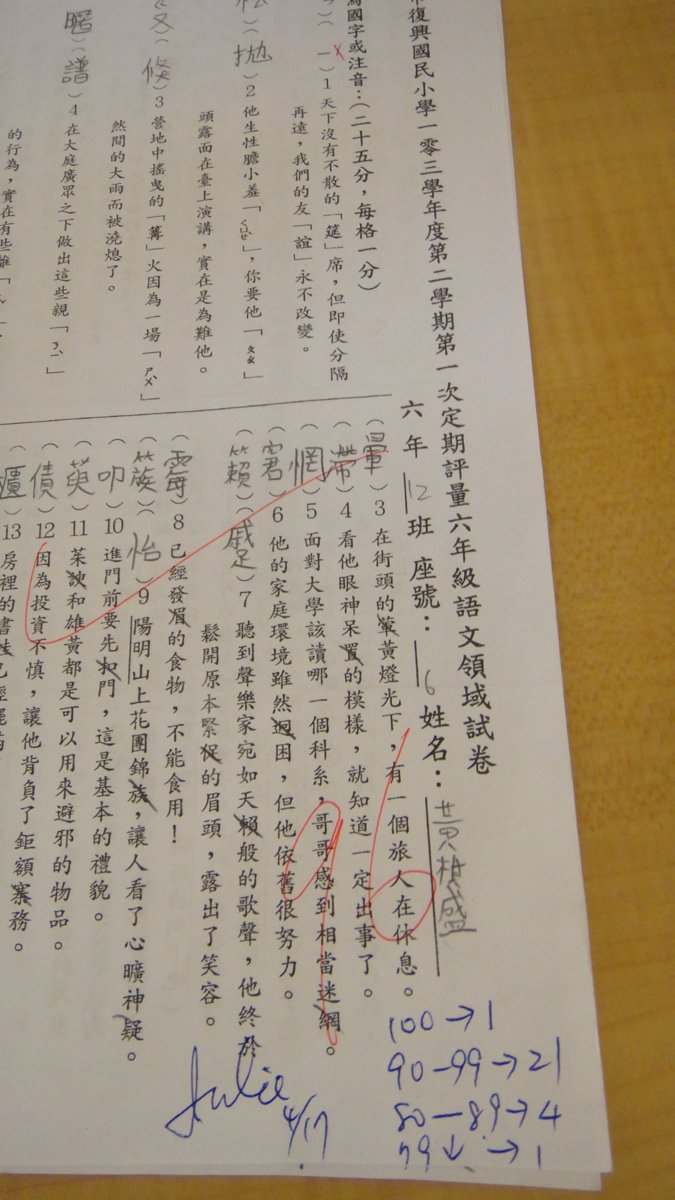 復興國民小學一零三學年度第二學期第一次定期評量六年級語文領域試卷
六年12班 座號：6 姓名：黃柏盛
國字或注音：（二十五分，每格一分）
（一）1天下沒有不散的「筵」席，但即使分隔
再遠，我們的友「誼」永不改變。
（拋）2他生性膽小羞「ㄑㄩㄝˋ」，你要他「ㄆㄠ」
頭露面在臺上演講，實在是為難他。
（倏）3營地中搖曳的「篝」火因為一場「ㄕㄨˋ」
然間的大雨而被澆熄了。
（譜）4在大庭廣眾之下做出這些親「ㄋㄧˋ」
的行為，實在有些離「
（暈）3在街頭的葷黃燈光下，有一個旅人在休息。
（滯）4看他眼神呆置的模樣，就知道一定出事了。
（惘）5面對大學該讀哪一個科系，哥哥感到相當迷網。
（窘）6他的家庭環境雖然迥困，但他依舊很努力。
（籟）（蹙）7聽到聲樂家宛如天賴般的歌聲，他終於
鬆開原本緊促的眉頭，露出了笑容。
（霉）8已經發眉的食物，不能食用！
（簇）（怡）9陽明山上花團錦族，讓人看了心曠神疑。
（叩）10進門前要先扣門，這是基本的禮貌。
（萸）11茱諛和雄黃都是可以用來避邪的物品。
（債）12因為投資不慎，讓他背負了鉅額寨務。
13房裡的書
Julie
4/17
100→1
90-99→21
80-89→4
79↓→1